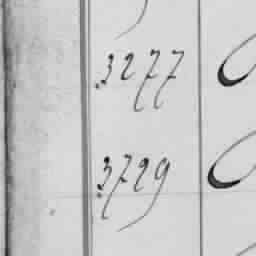 3277
3729